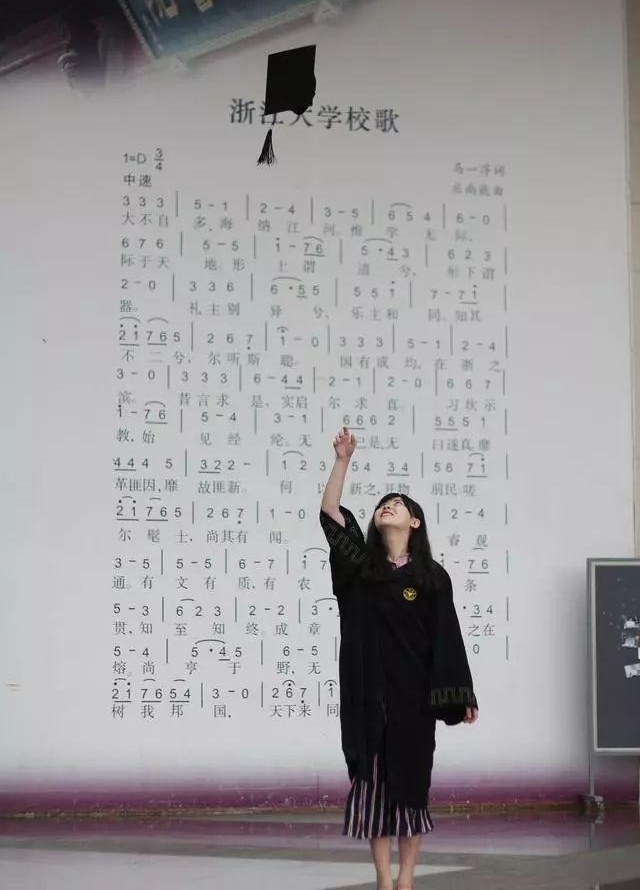 浙江大学校歌
1=D 3/4
中速
马一浮词
3 3 3 | 5 - 1 | 2 - 4 | 3 - 5 | 6 5 4 | 6 - 0 |
大不自 多,海 纳江 河。惟 学 无际,
6 7 6 | 5 - 5 | i - 7 6 | 5 · 4 3 | 6 2 3 |
际于天 地。形 上谓 道 兮, 形下谓
2 - 0 | 3 3 6 | 6 · 5 5 | 5 5 i | 7 - 7 i |
器。 礼主别 异 兮, 乐主和 同。知其
2 i 7 6 5 | 2 6 7 | i - 0 | 3 3 3 | 5 - 1 | 2 - 4 |
不 二兮, 尔听斯 聪。 国有成 均,在 浙之
3 - 0 | 3 3 3 | 6 - 4 4 | 2 - 1 | 2 - 0 | 6 6 7 |
滨。 昔言求 是,实启 尔求 真。 习坎示
i - 7 6 | 5 - 4 | 3 - 1 | 6 6 6 2 | 5 5 5 1 |
教,始 见经 纶。无 已是,无 曰遂真,靡
4 4 4 5 | 3 2 2 - | 1 2 3 | 5 4 3 4 | 5 6 7 i |
革匪因,靡 故匪新。 何 以 新之,开物 前民。嗟
2 i 7 6 5 | 2 6 7 | i - 0 | 3 | 2 - 4 |
尔 髦士, 尚其有 闻。 睿观
3 - 5 | 5 - 5 | 6 - 6 | i 7 | - 7 6 |
通。有 文有 质,有 农 条
5 - 3 | 6 2 3 | 2 - 2 | 3 · | · 3 4 |
贯,知 至 知 终。成 章 之在
5 - 4 | 5 · 4 5 | 6 - 5 |
熔。尚 亨 于 野,无
2 i 7 6 5 4 | 3 - 0 | 2 6 7 | i
树 我 邦 国, 天下来 同